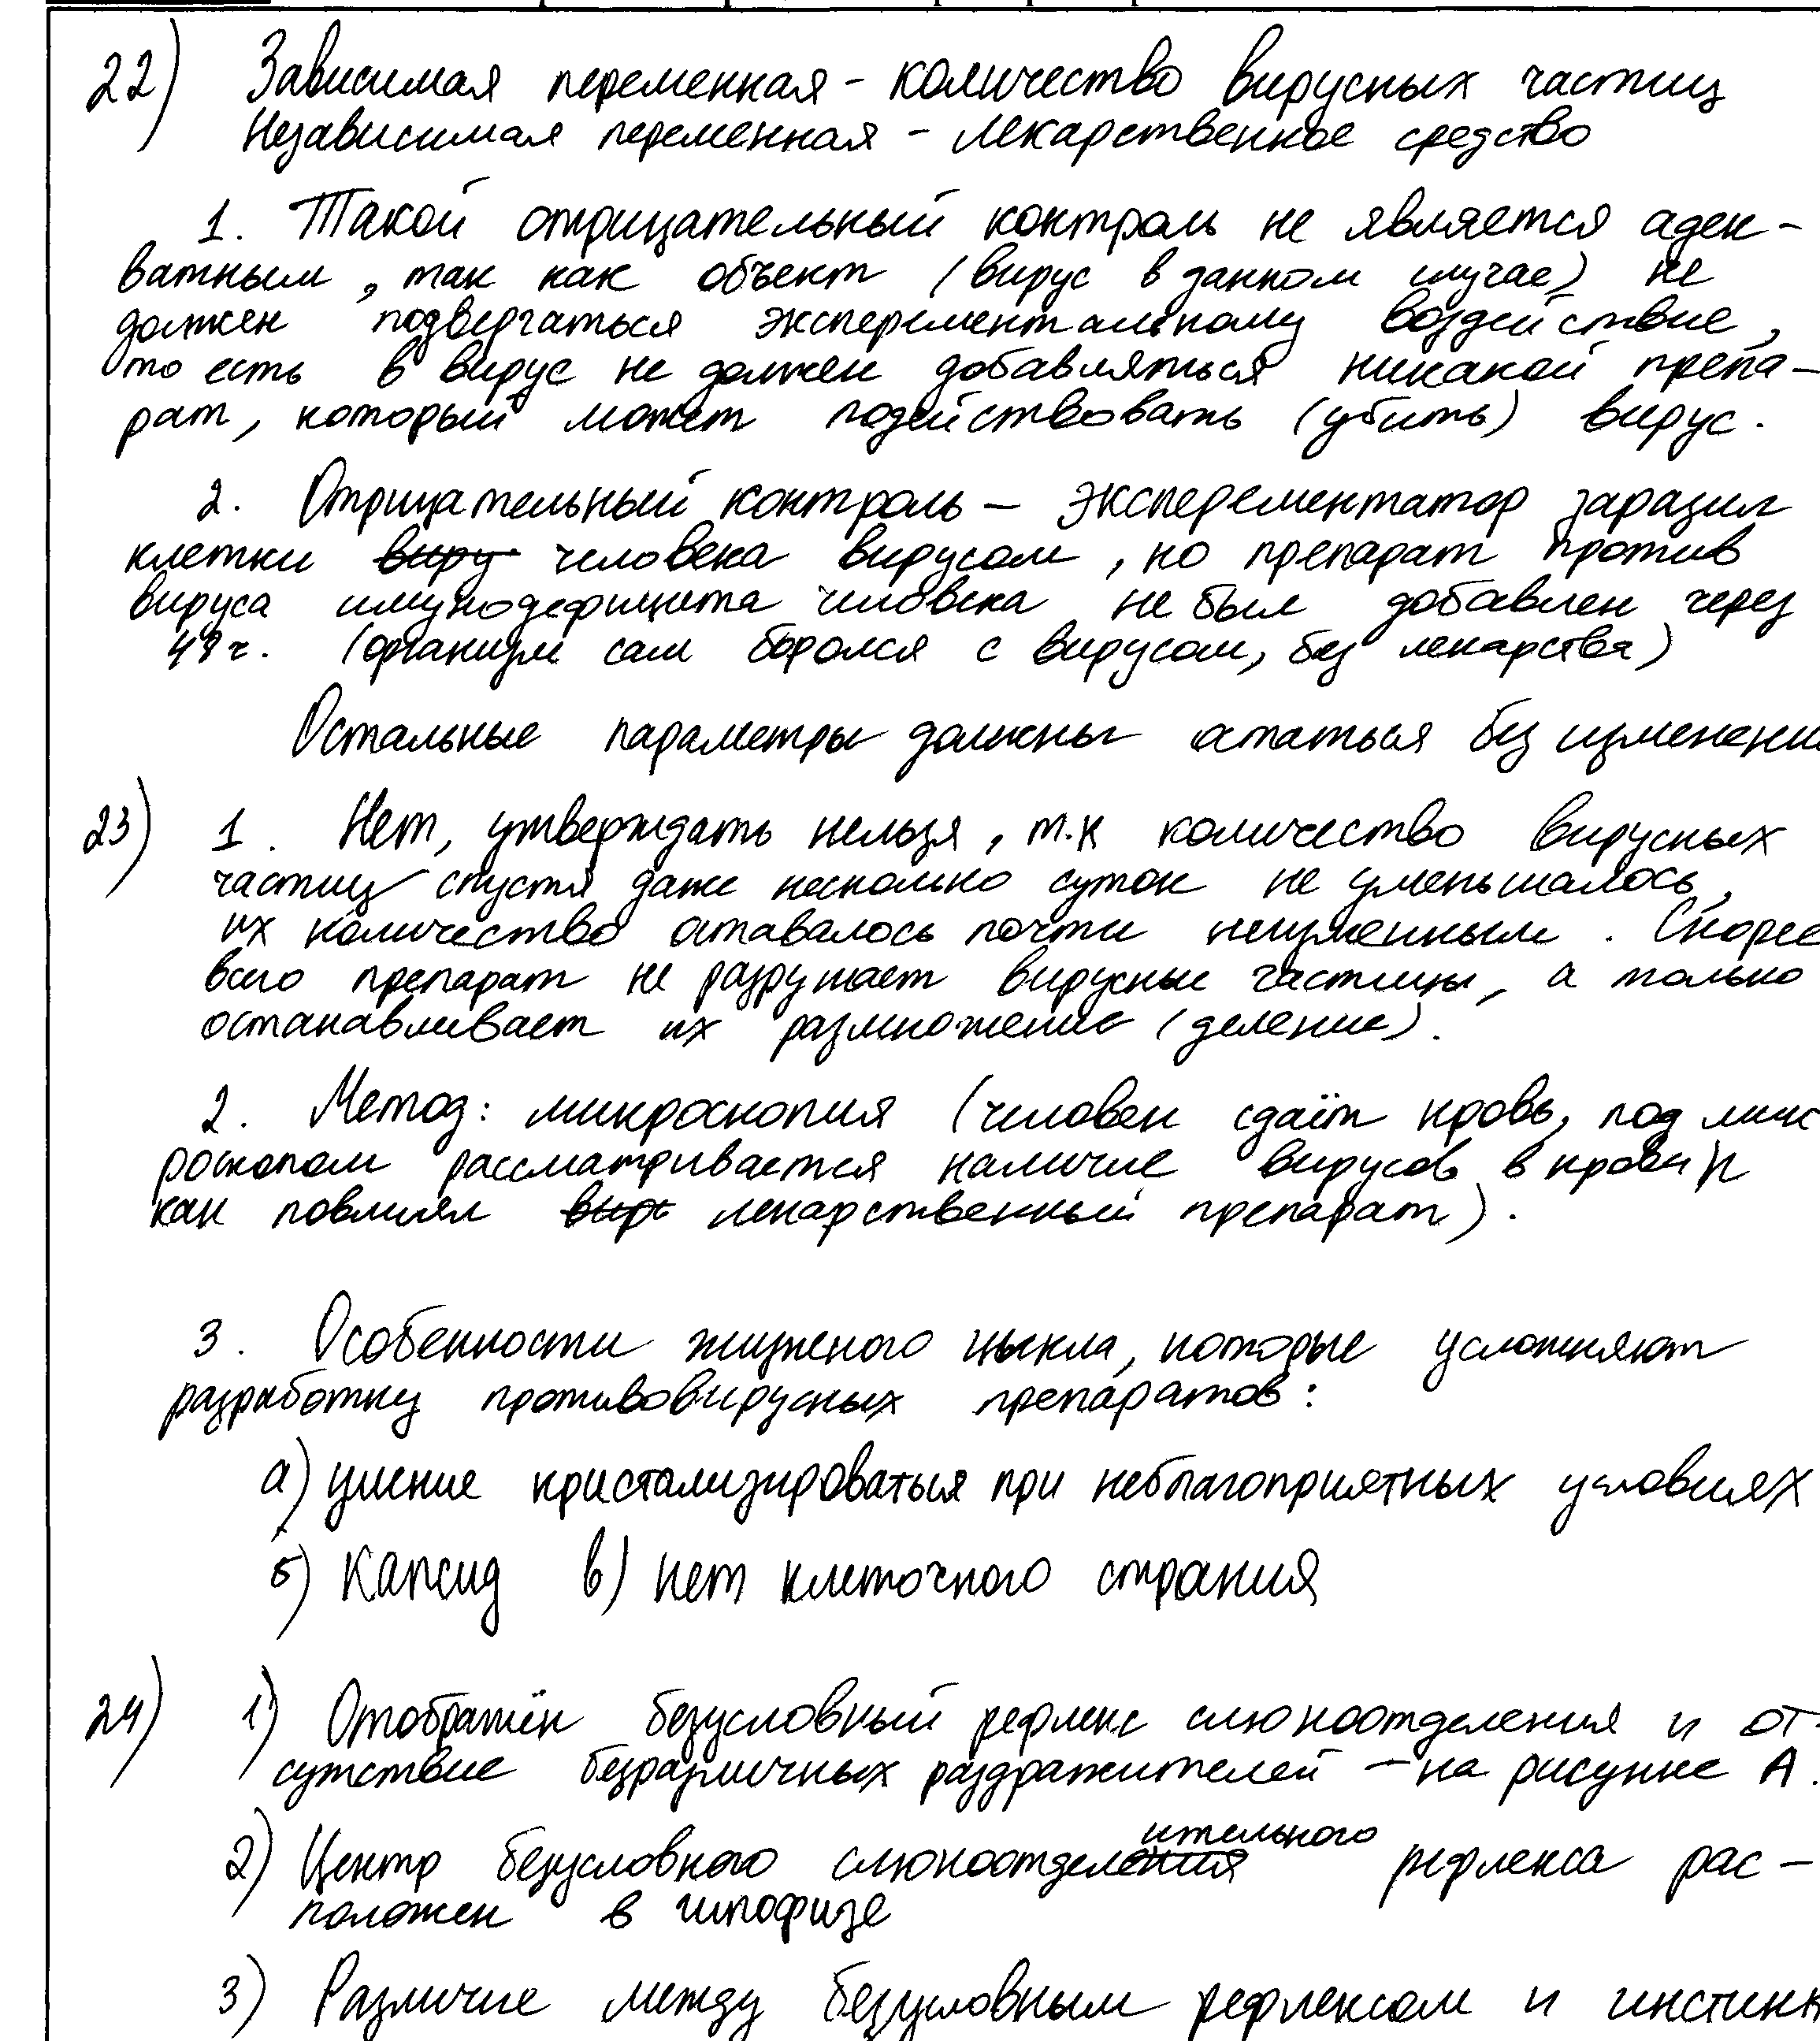 22) Зависимая переменная - количество вирусных частиц
Независимая переменная - лекарственное средство
1. Такой отрицательный контроль не является адек-
ватным, так как объект (вирус в данном случае) не
должен подвергаться эксперементальному воздействие,
то есть в вирус не должен добавляться никакой препа-
рат, который может подействовать (убить) вирус.
2. Отрицательный контроль - эксперементатор заразил
клетки человека вирусом, но препарат против
вируса имунодефицита человека не был добавлен через
48 ч. (организм сам боролся с вирусом, без лекарства)
Остальные параметры должны остаться без изменени
23) 1. Нет, утверждать нельзя, т.к количество вирусных
частиц спустя даже несколько суток не уменьшалось,
их количество оставалось почти неизменным. Скорее
всего препарат не разрушает вирусные частицы, а только
останавливает их размножение (деление).
2. Метод: микроскопия (человек сдаёт кровь, под мик
роскопом рассматривается наличие вирусов в крови и
как повлиял лекарственный препарат).
3. Особенности жизненого цыкла, которые усложняют
разработку противовирусных препаратов:
а) умение кристализироваться при неблагоприятных условиях
б) капсид в) нет клеточного страния
24) 1) Отображён безусловный рефлекс слюноотделения и от-
сутствие безразличных раздражителей - на рисунке А.
2) Центр безусловного слюноотделительного рефлекса рас-
положен в гипофизе
3) Различие между безусловным рефлексом и инстинк